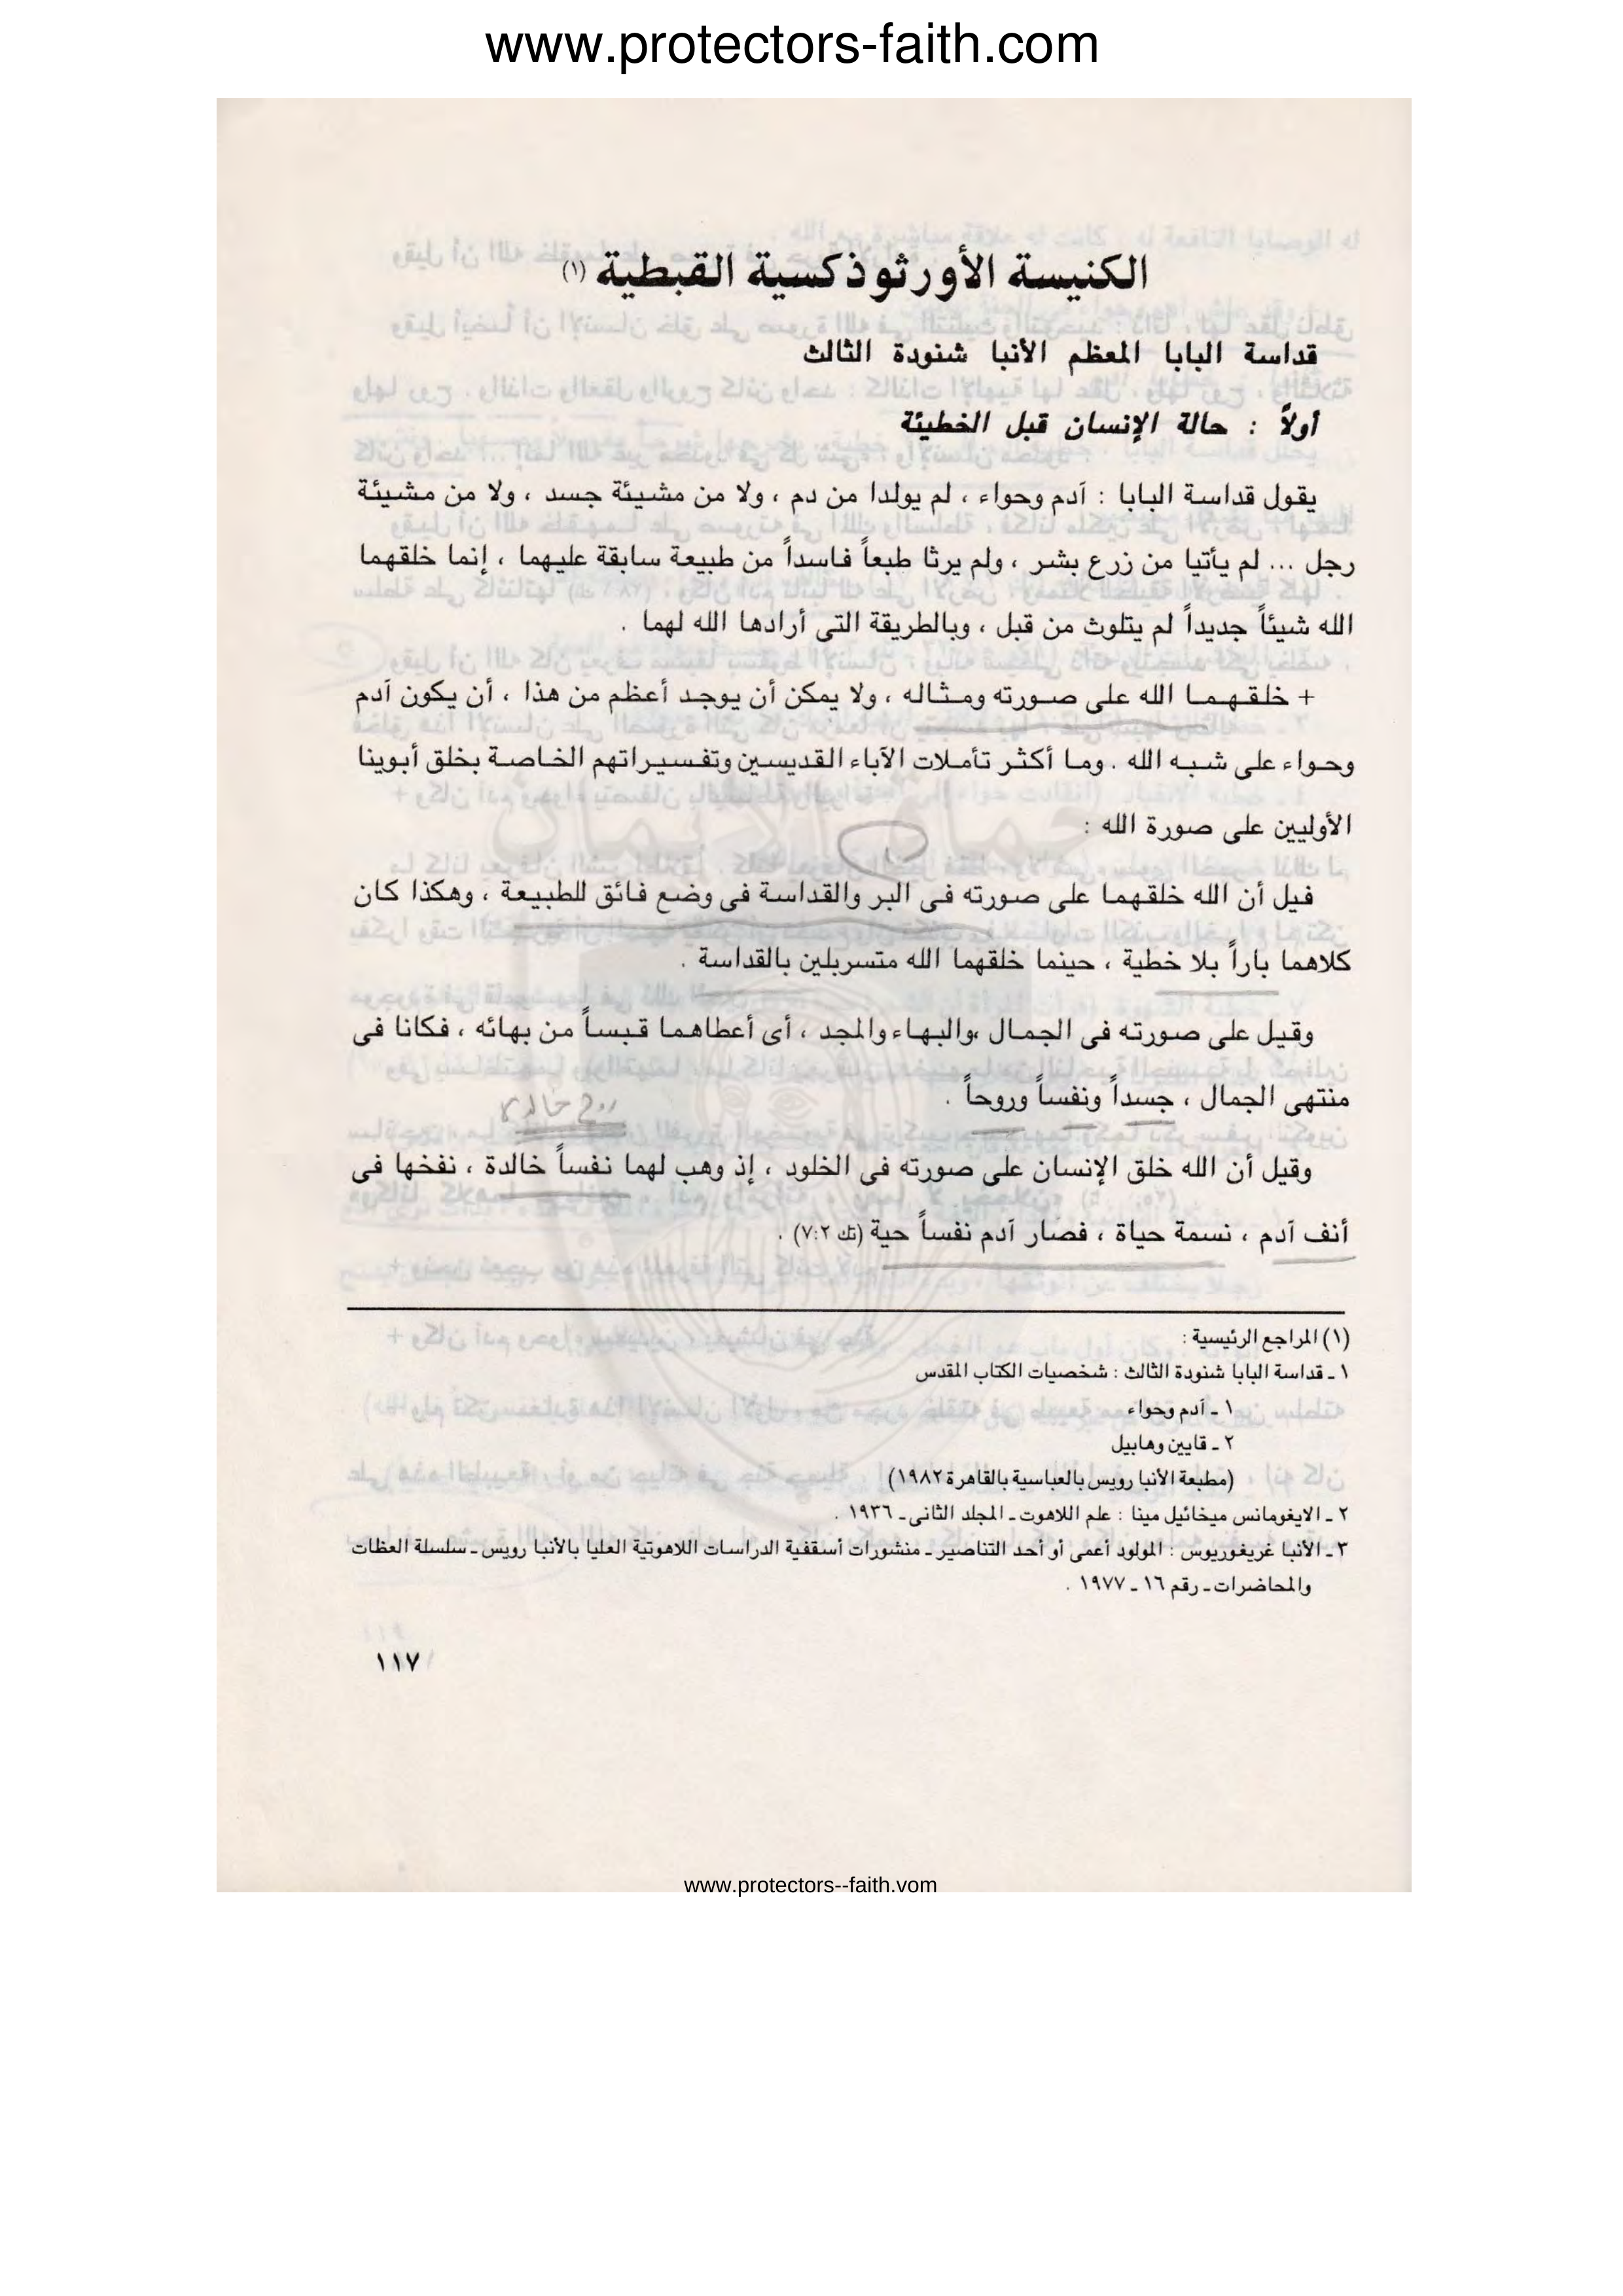 www.protectors-faith.com
الكنيسة الأورثوذكسية القبطية (١)
قداسة البابا المعظم الأنبا شنودة الثالث
أولاً : حالة الإنسان قبل الخطيئة
يقول قداسة البابا : آدم وحواء ، لم يولدا من دم ، ولا من مشيئة جسد ، ولا من مشيئة
رجل ... لم يأتيا من زرع بشر ، ولم يرثا طبعاً فاسداً من طبيعة سابقة عليهما ، إنما خلقهما
الله شيئاً جديداً لم يتلوث من قبل ، وبالطريقة التى أرادها الله لهما .
+ خلقهما الله على صورته ومثاله ، ولا يمكن أن يوجد أعظم من هذا ، أن يكون آدم
وحواء على شبه الله . وما أكثر تأملات الآباء القديسين وتفسيراتهم الخاصة بخلق أبوينا
الأوليين على صورة الله :
حماة الأيمان
فيل أن الله خلقهما على صورته فى البر والقداسة فى وضع فائق للطبيعة ، وهكذا كان
كلاهما باراً بلا خطية ، حينما خلقهما الله متسربلين بالقداسة .
وقيل على صورته فى الجمال ،والبهاء والمجد ، أى أعطاهما قبساً من بهائه ، فكانا فى
منتهى الجمال ، جسداً ونفساً وروحاً .
روح خالدة
وقيل أن الله خلق الإنسان على صورته فى الخلود ، إذ وهب لهما نفساً خالدة ، نفخها فى
أنف آدم ، نسمة حياة ، فصار آدم نفساً حية (تك ٧:٢) .
(١) المراجع الرئيسية :
١ ـ قداسة البابا شنودة الثالث : شخصيات الكتاب المقدس
١ ـ آدم وحواء
٢ ـ قايين وهابيل
(مطبعة الأنبا رويس بالعباسية بالقاهرة ١٩٨٢)
٢ ـ الايغومانس ميخائيل مينا : علم اللاهوت ـ المجلد الثانى ـ ١٩٣٦ .
٣ ـ الأنبا غريغوريوس : المولود أعمى أو أحد التناصير ـ منشورات أسقفية الدراسات اللاهوتية العليا بالأنبا رويس ـ سلسلة العظات
والمحاضرات ـ رقم ١٦ ـ ١٩٧٧ .
١١٧
www.protectors--faith.vom